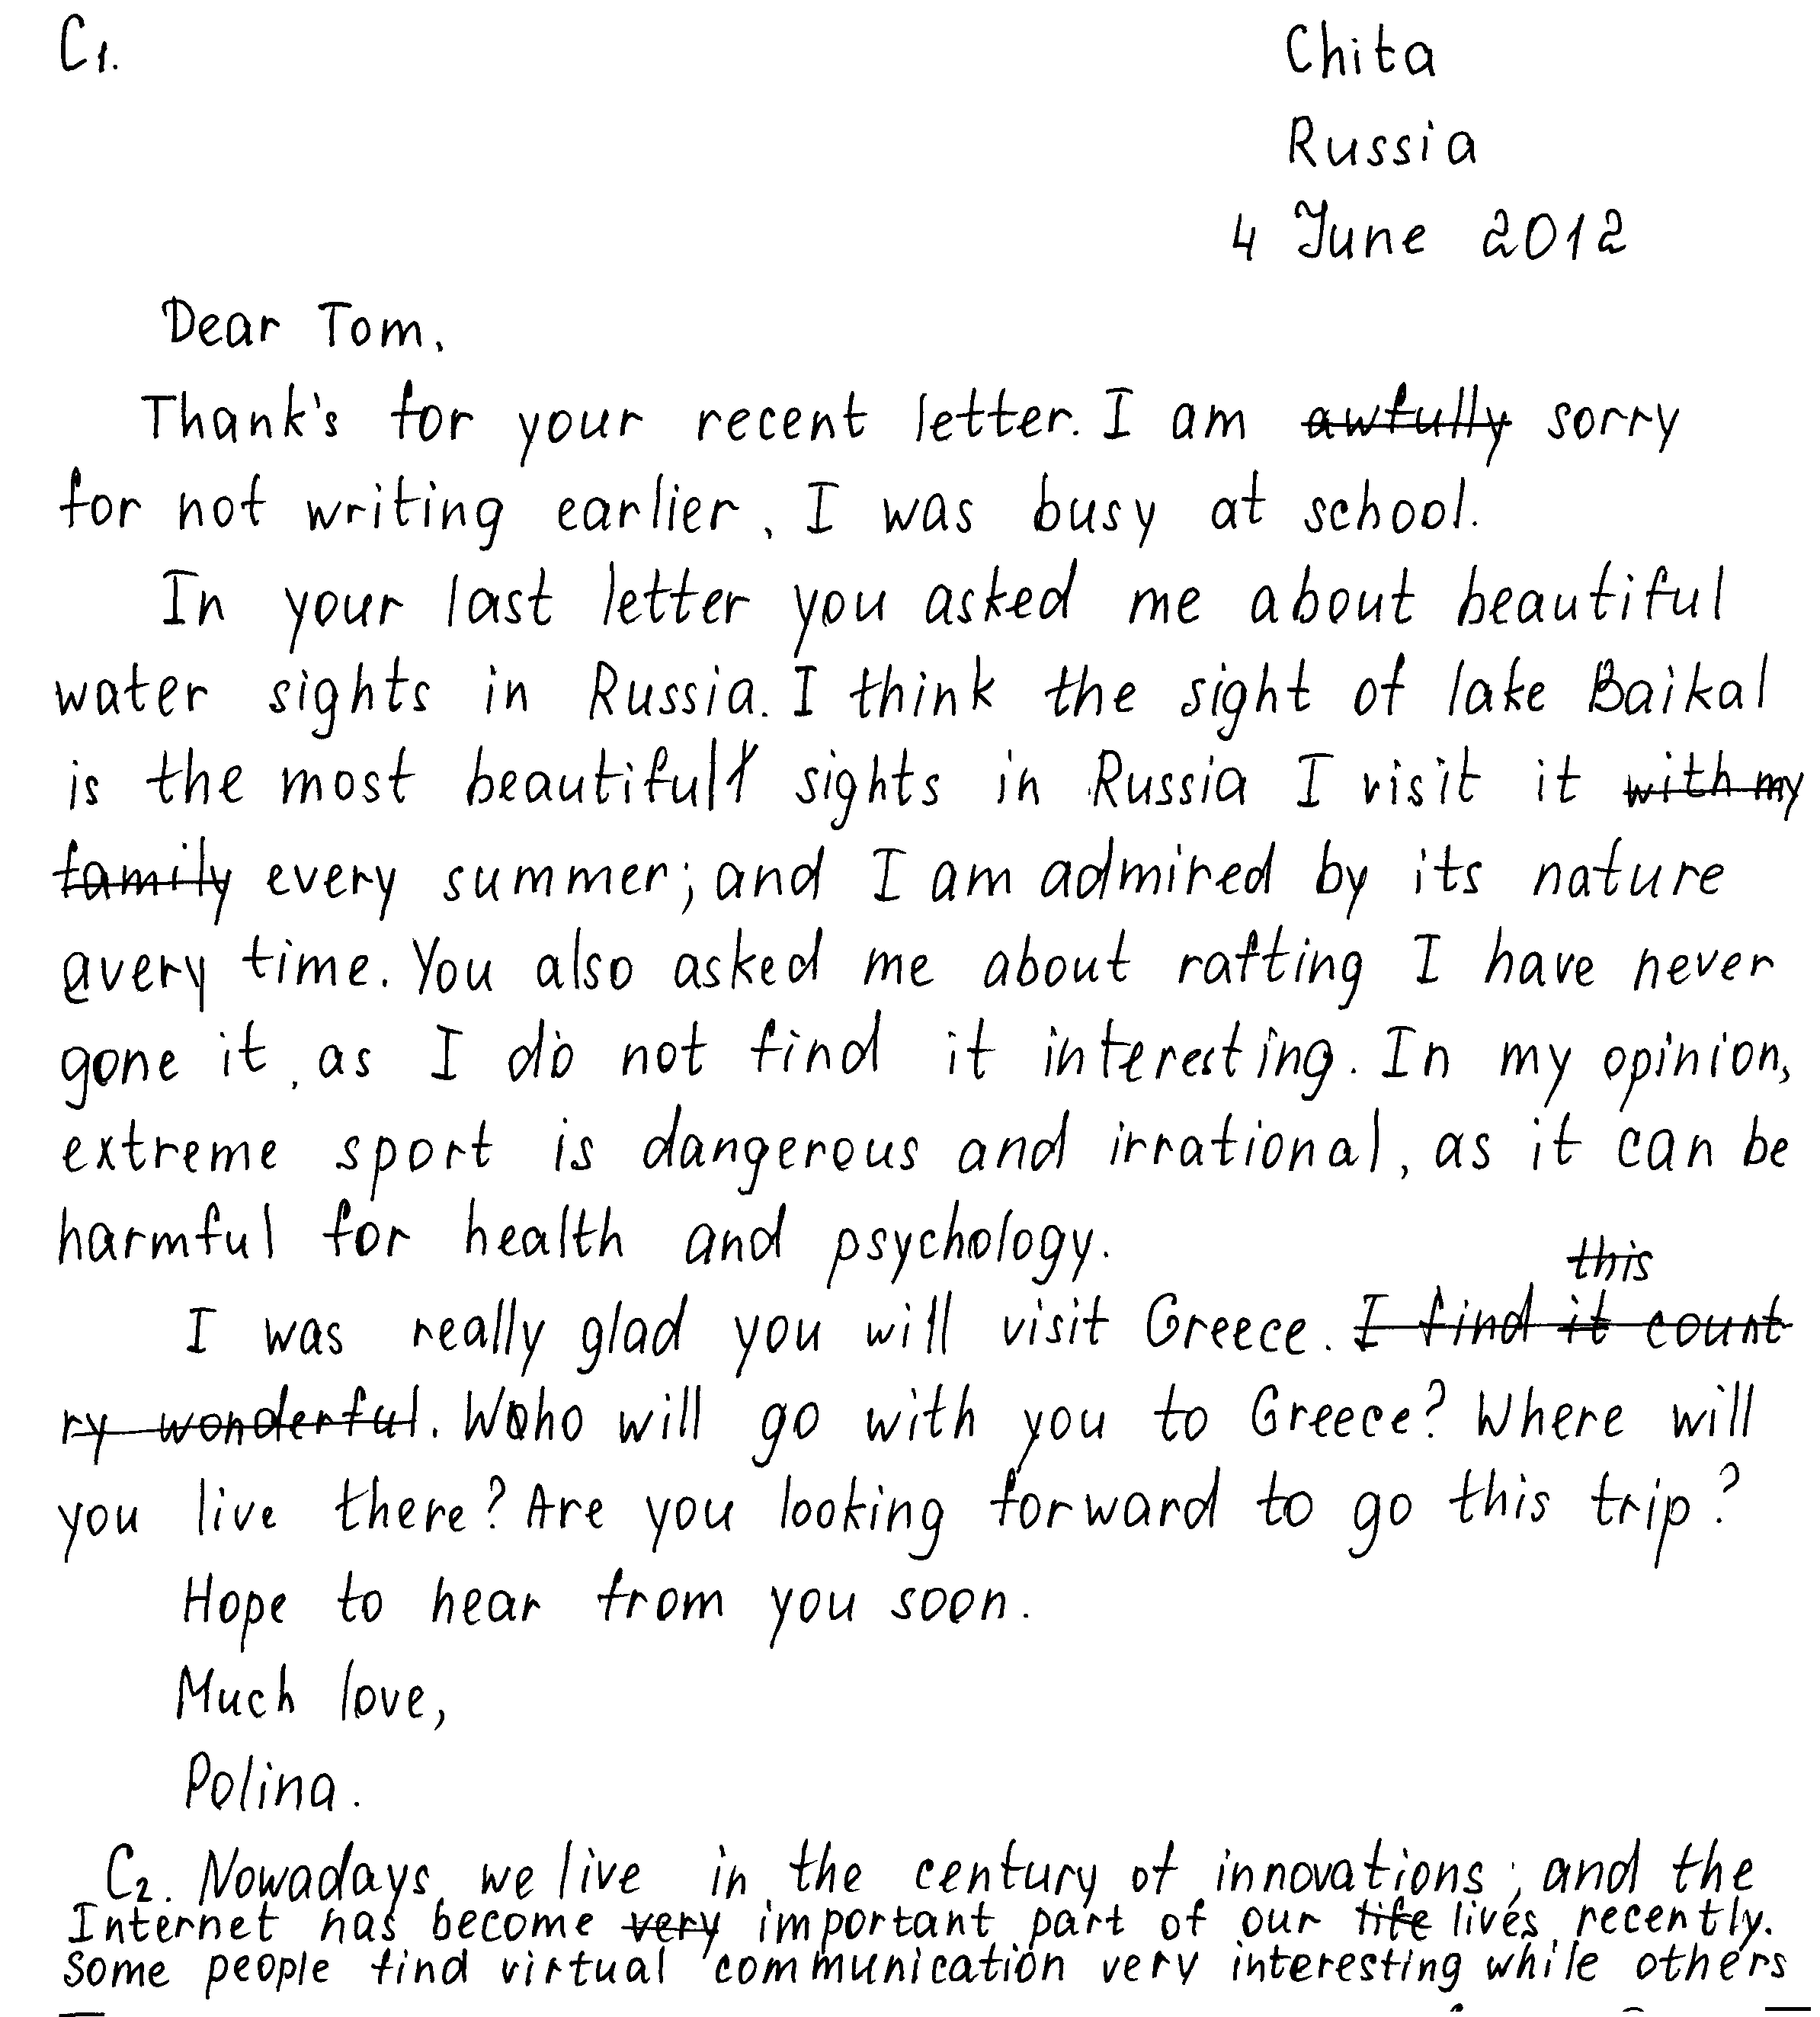 C1.
Chita
Russia
4 June 2012
Dear Tom,
Thank's for your recent letter. I am awfully sorry
for not writing earlier, I was busy at school.
In your last letter you asked me about beautiful
water sights in Russia. I think the sight of lake Baikal
is the most beautiful sights in Russia I visit it with my
family every summer; and I am admired by its nature
every time. You also asked me about rafting I have never
gone it, as I do not find it interesting. In my opinion,
extreme sport is dangerous and irrational, as it can be
harmful for health and psychology.
this
I was really glad you will visit Greece. I find it count
ry wonderful. Who will go with you to Greece? Where will
you live there? Are you looking forward to go this trip?
Hope to hear from you soon.
Much love,
Polina.
C2. Nowadays, we live in the century of innovations, and the
Internet has become very important part of our life lives recently.
Some people find virtual communication very interesting while others